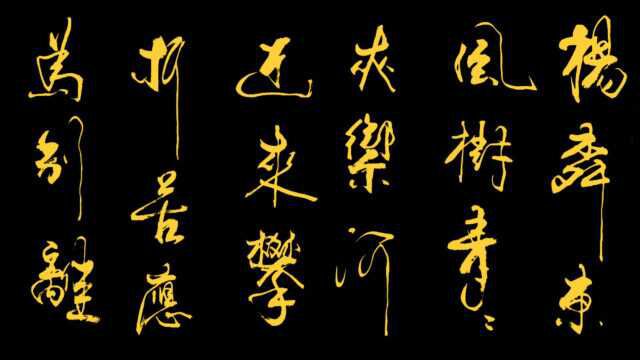 楊柳東
風樹青〻
夾禦河
近來攀
折苦應
為別離